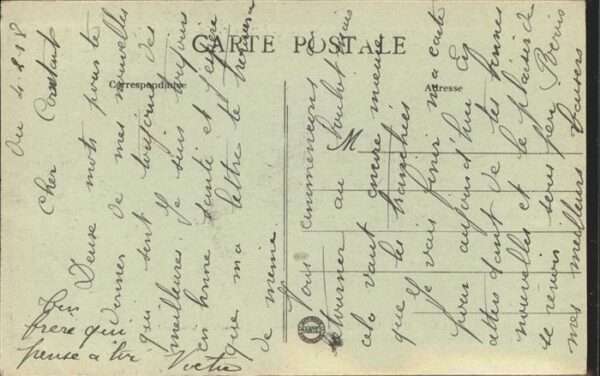 CARTE POSTALE
Correspondance
Adresse
M
Du 4-8-18
Cher Constant
Deuse mots pour te
donner de mes nouvelles
qui sont toujours des
meilleures. Je suis toujours
en bonne santé et j'espère
que ma lettre te trouvera
de même
Nous commençons à
retourner au boulot mais
cela vaut encore mieux
que les tranchées
Je vais finir ma carte
pour aujourd'hui En
attendant de tes bonnes
nouvelles et le plaisir de
se revoir sous peu Reçois
mes meilleurs baisers
Ton
frère qui
pense à toi
Victor